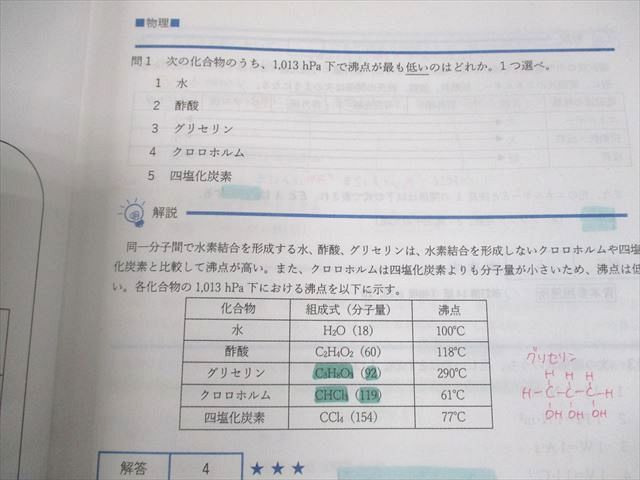 ■物理■
問1 次の化合物のうち、1,013 hPa 下で沸点が最も低いのはどれか。1つ選べ。
1 水
2 酢酸
3 グリセリン
4 クロロホルム
5 四塩化炭素
解説
同一分子間で水素結合を形成する水、酢酸、グリセリンは、水素結合を形成しないクロロホルムや四塩
化炭素と比較して沸点が高い。また、クロロホルムは四塩化炭素よりも分子量が小さいため、沸点は低
い。各化合物の 1,013 hPa 下における沸点を以下に示す。
化合物 組成式（分子量） 沸点
水 H₂O (18) 100℃
酢酸 C₂H₄O₂ (60) 118℃
グリセリン C₃H₈O₃ (92) 290℃
クロロホルム CHCl₃ (119) 61℃
四塩化炭素 CCl₄ (154) 77℃
グリセリン
H H H
H-C-C-C-H
OH OH OH
解答 4 ★★★